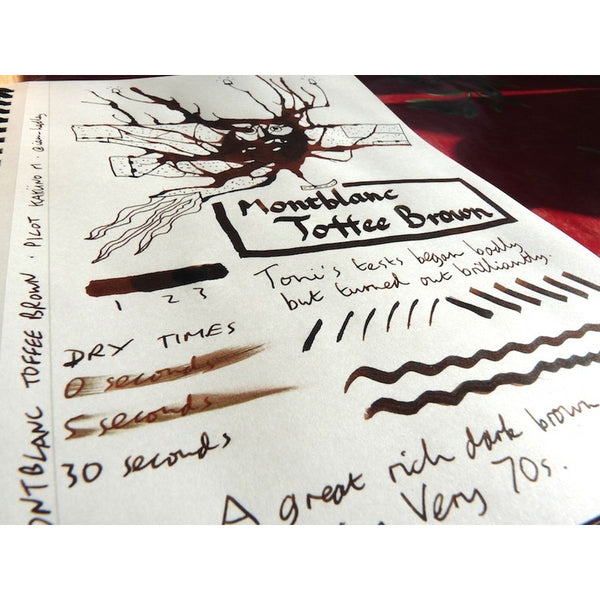 Montblanc
Toffee Brown
Toni's tests began badly
but turned out brilliantly.
1 2 3
DRY TIMES
0 seconds
5 seconds
30 seconds
A great rich dark brown
Very 70s.
ONTBLANC TOFFEE BROWN · PILOT KAKÜNO M ·